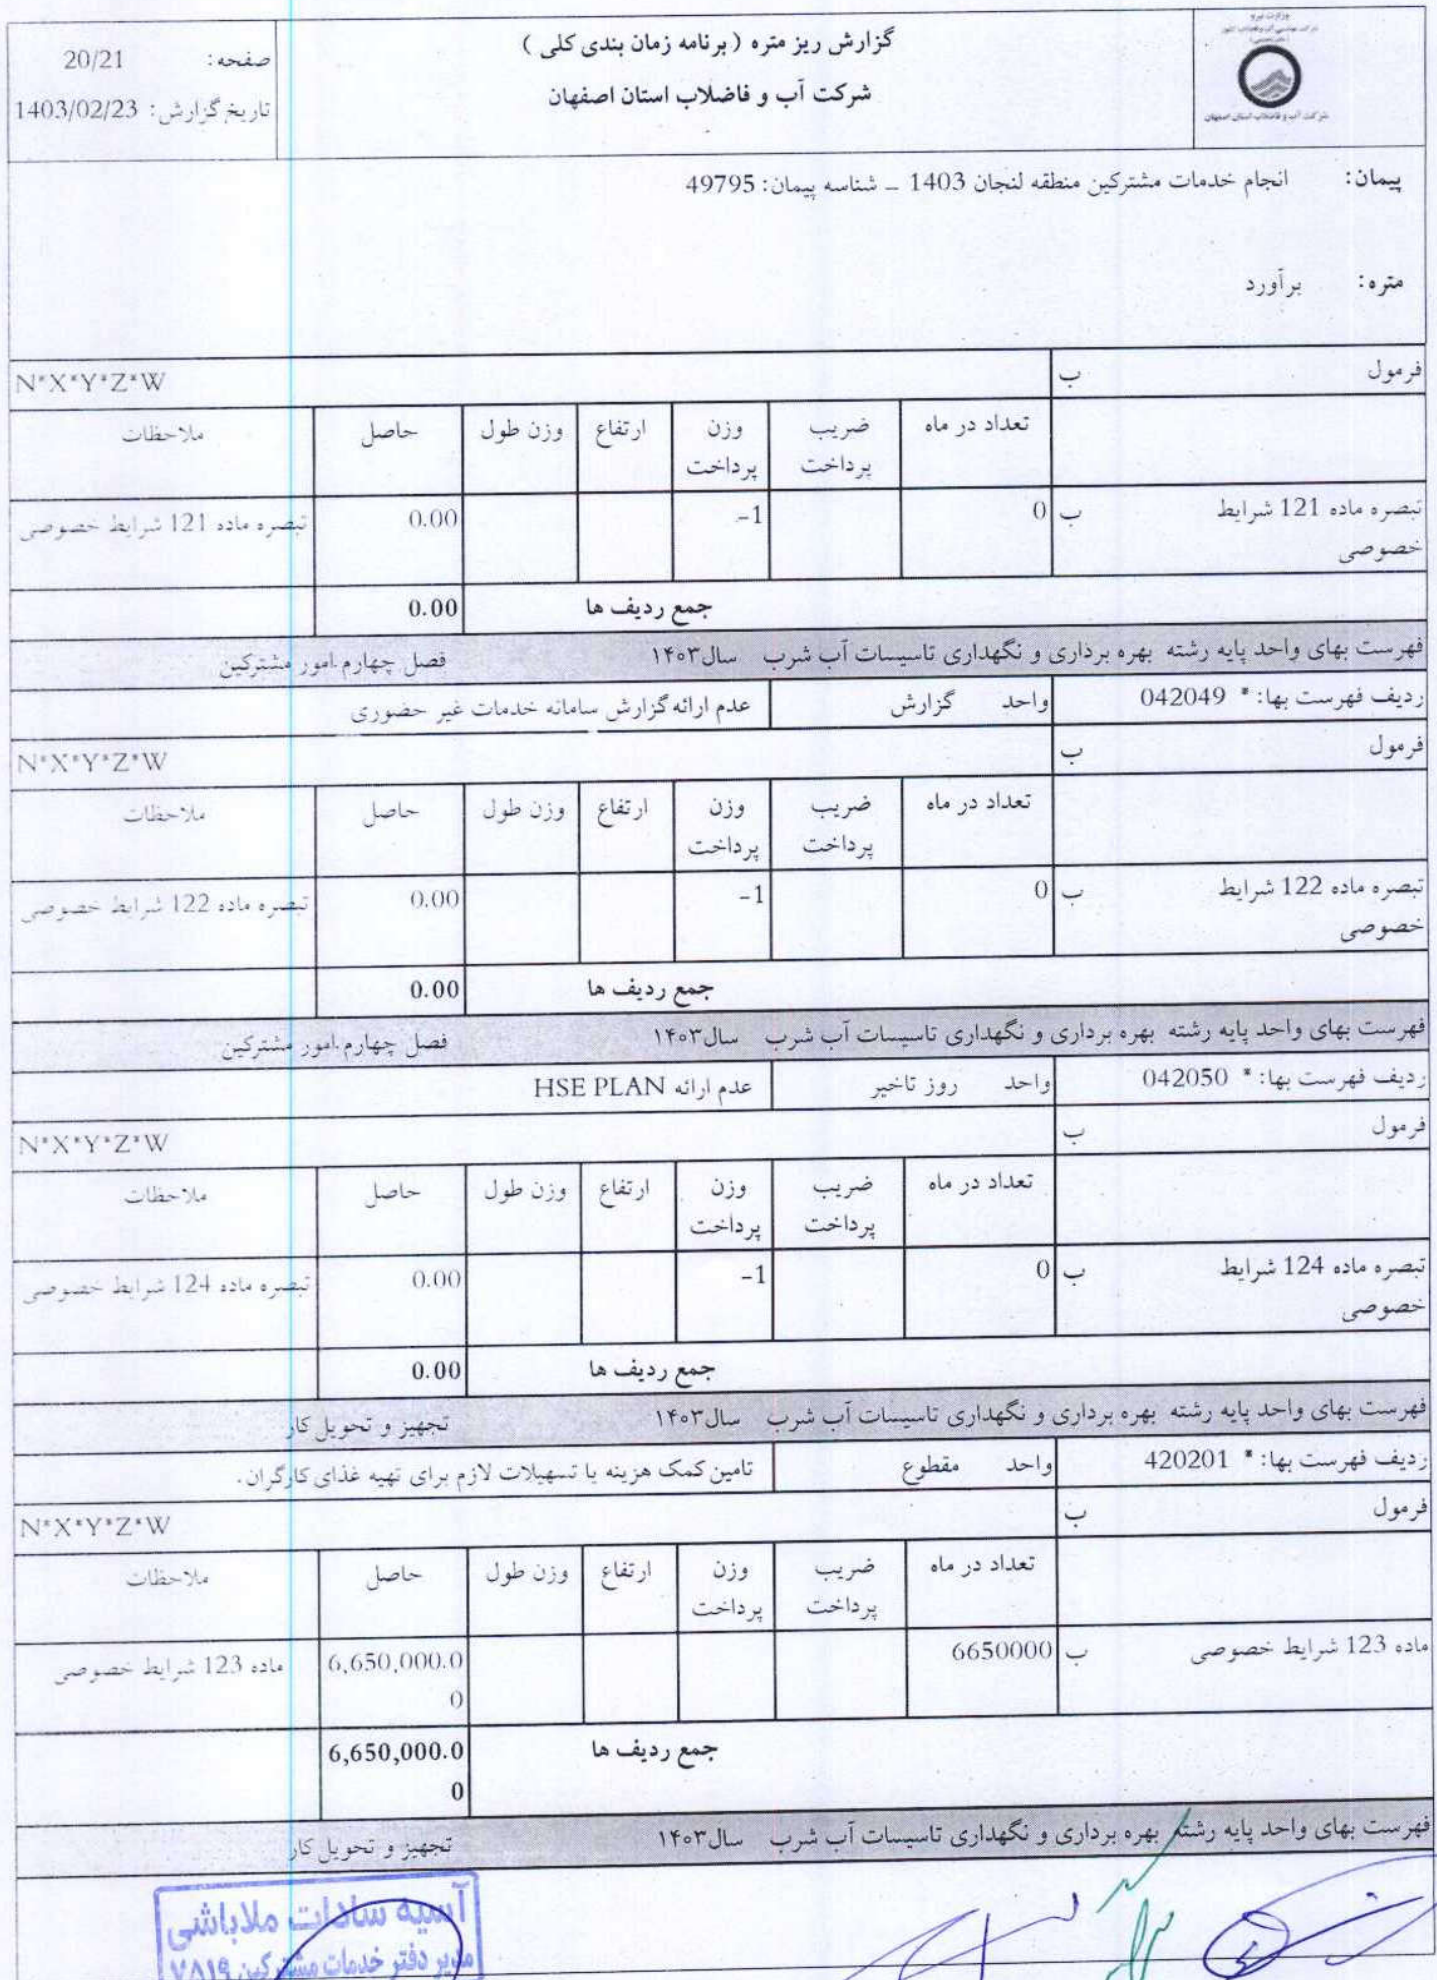 وزارت نیرو
شرکت آب و فاضلاب استان اصفهان
گزارش ریز متره ( برنامه زمان بندی کلی )
شرکت آب و فاضلاب استان اصفهان
صفحه: 20/21
تاریخ گزارش: 1403/02/23
پیمان: انجام خدمات مشترکین منطقه لنجان 1403 - شناسه پیمان: 49795
متره: برآورد
فرمول ب N*X*Y*Z*W
تعداد در ماه ضریب پرداخت وزن پرداخت ارتفاع وزن طول حاصل ملاحظات
تبصره ماده 121 شرایط خصوصی ب 0 -1 0.00 تبصره ماده 121 شرایط خصوصی
جمع ردیف ها 0.00
فهرست بهای واحد پایه رشته بهره برداری و نگهداری تاسیسات آب شرب سال۱۴۰۳ فصل چهارم.امور مشترکین
ردیف فهرست بها: * 042049 واحد گزارش عدم ارائه گزارش سامانه خدمات غیر حضوری
فرمول ب N*X*Y*Z*W
تعداد در ماه ضریب پرداخت وزن پرداخت ارتفاع وزن طول حاصل ملاحظات
تبصره ماده 122 شرایط خصوصی ب 0 -1 0.00 تبصره ماده 122 شرایط خصوصی
جمع ردیف ها 0.00
فهرست بهای واحد پایه رشته بهره برداری و نگهداری تاسیسات آب شرب سال۱۴۰۳ فصل چهارم.امور مشترکین
ردیف فهرست بها: * 042050 واحد روز تاخیر عدم ارائه HSE PLAN
فرمول ب N*X*Y*Z*W
تعداد در ماه ضریب پرداخت وزن پرداخت ارتفاع وزن طول حاصل ملاحظات
تبصره ماده 124 شرایط خصوصی ب 0 -1 0.00 تبصره ماده 124 شرایط خصوصی
جمع ردیف ها 0.00
فهرست بهای واحد پایه رشته بهره برداری و نگهداری تاسیسات آب شرب سال۱۴۰۳ تجهیز و تحویل کار
ردیف فهرست بها: * 420201 واحد مقطوع تامین کمک هزینه یا تسهیلات لازم برای تهیه غذای کارگران.
فرمول ب N*X*Y*Z*W
تعداد در ماه ضریب پرداخت وزن پرداخت ارتفاع وزن طول حاصل ملاحظات
ماده 123 شرایط خصوصی ب 6650000 6,650,000.00 ماده 123 شرایط خصوصی
جمع ردیف ها 6,650,000.00
فهرست بهای واحد پایه رشته بهره برداری و نگهداری تاسیسات آب شرب سال۱۴۰۳ تجهیز و تحویل کار
آسیه سادات ملاباشی
مدیر دفتر خدمات مشترکین ۷۸۱۹